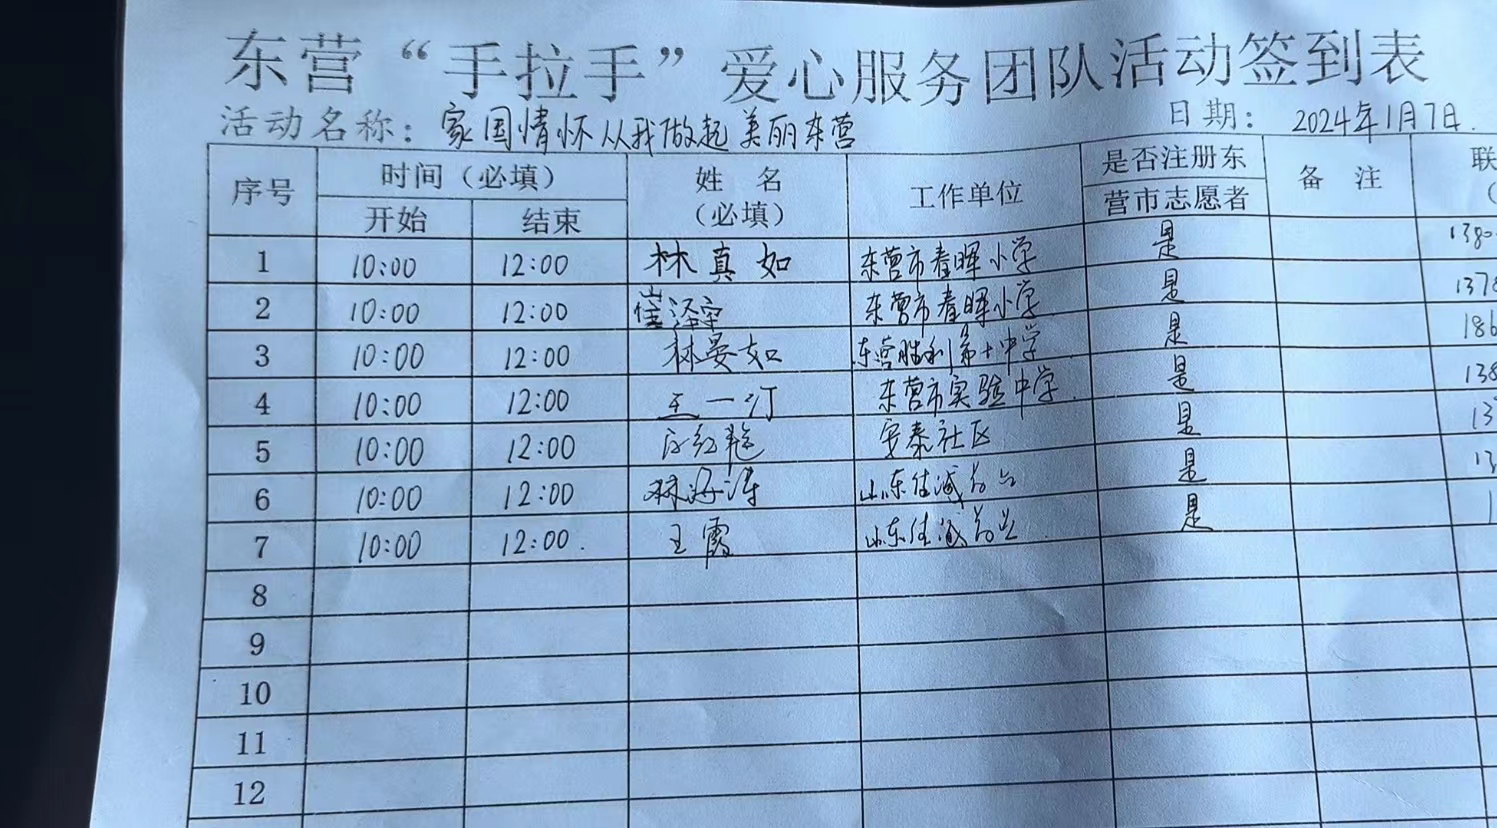 东营“手拉手”爱心服务团队活动签到表
活动名称：家国情怀从我做起美丽东营 日期：2024年1月7日.
序号 时间（必填） 姓名（必填） 工作单位 是否注册东营市志愿者 备注 联
开始 结束
1 10:00 12:00 林真如 东营市春晖小学 是 1380
2 10:00 12:00 崔泽宇 东营市春晖小学 是 1378
3 10:00 12:00 林晏如 东营胜利第十中学 是 186
4 10:00 12:00 王一汀 东营市实验中学 是 138
5 10:00 12:00 安泰社区 是 13
6 10:00 12:00 林海涛 山东佳诚 是 13
7 10:00 12:00. 王霞 山东佳诚 是 1
8
9
10
11
12